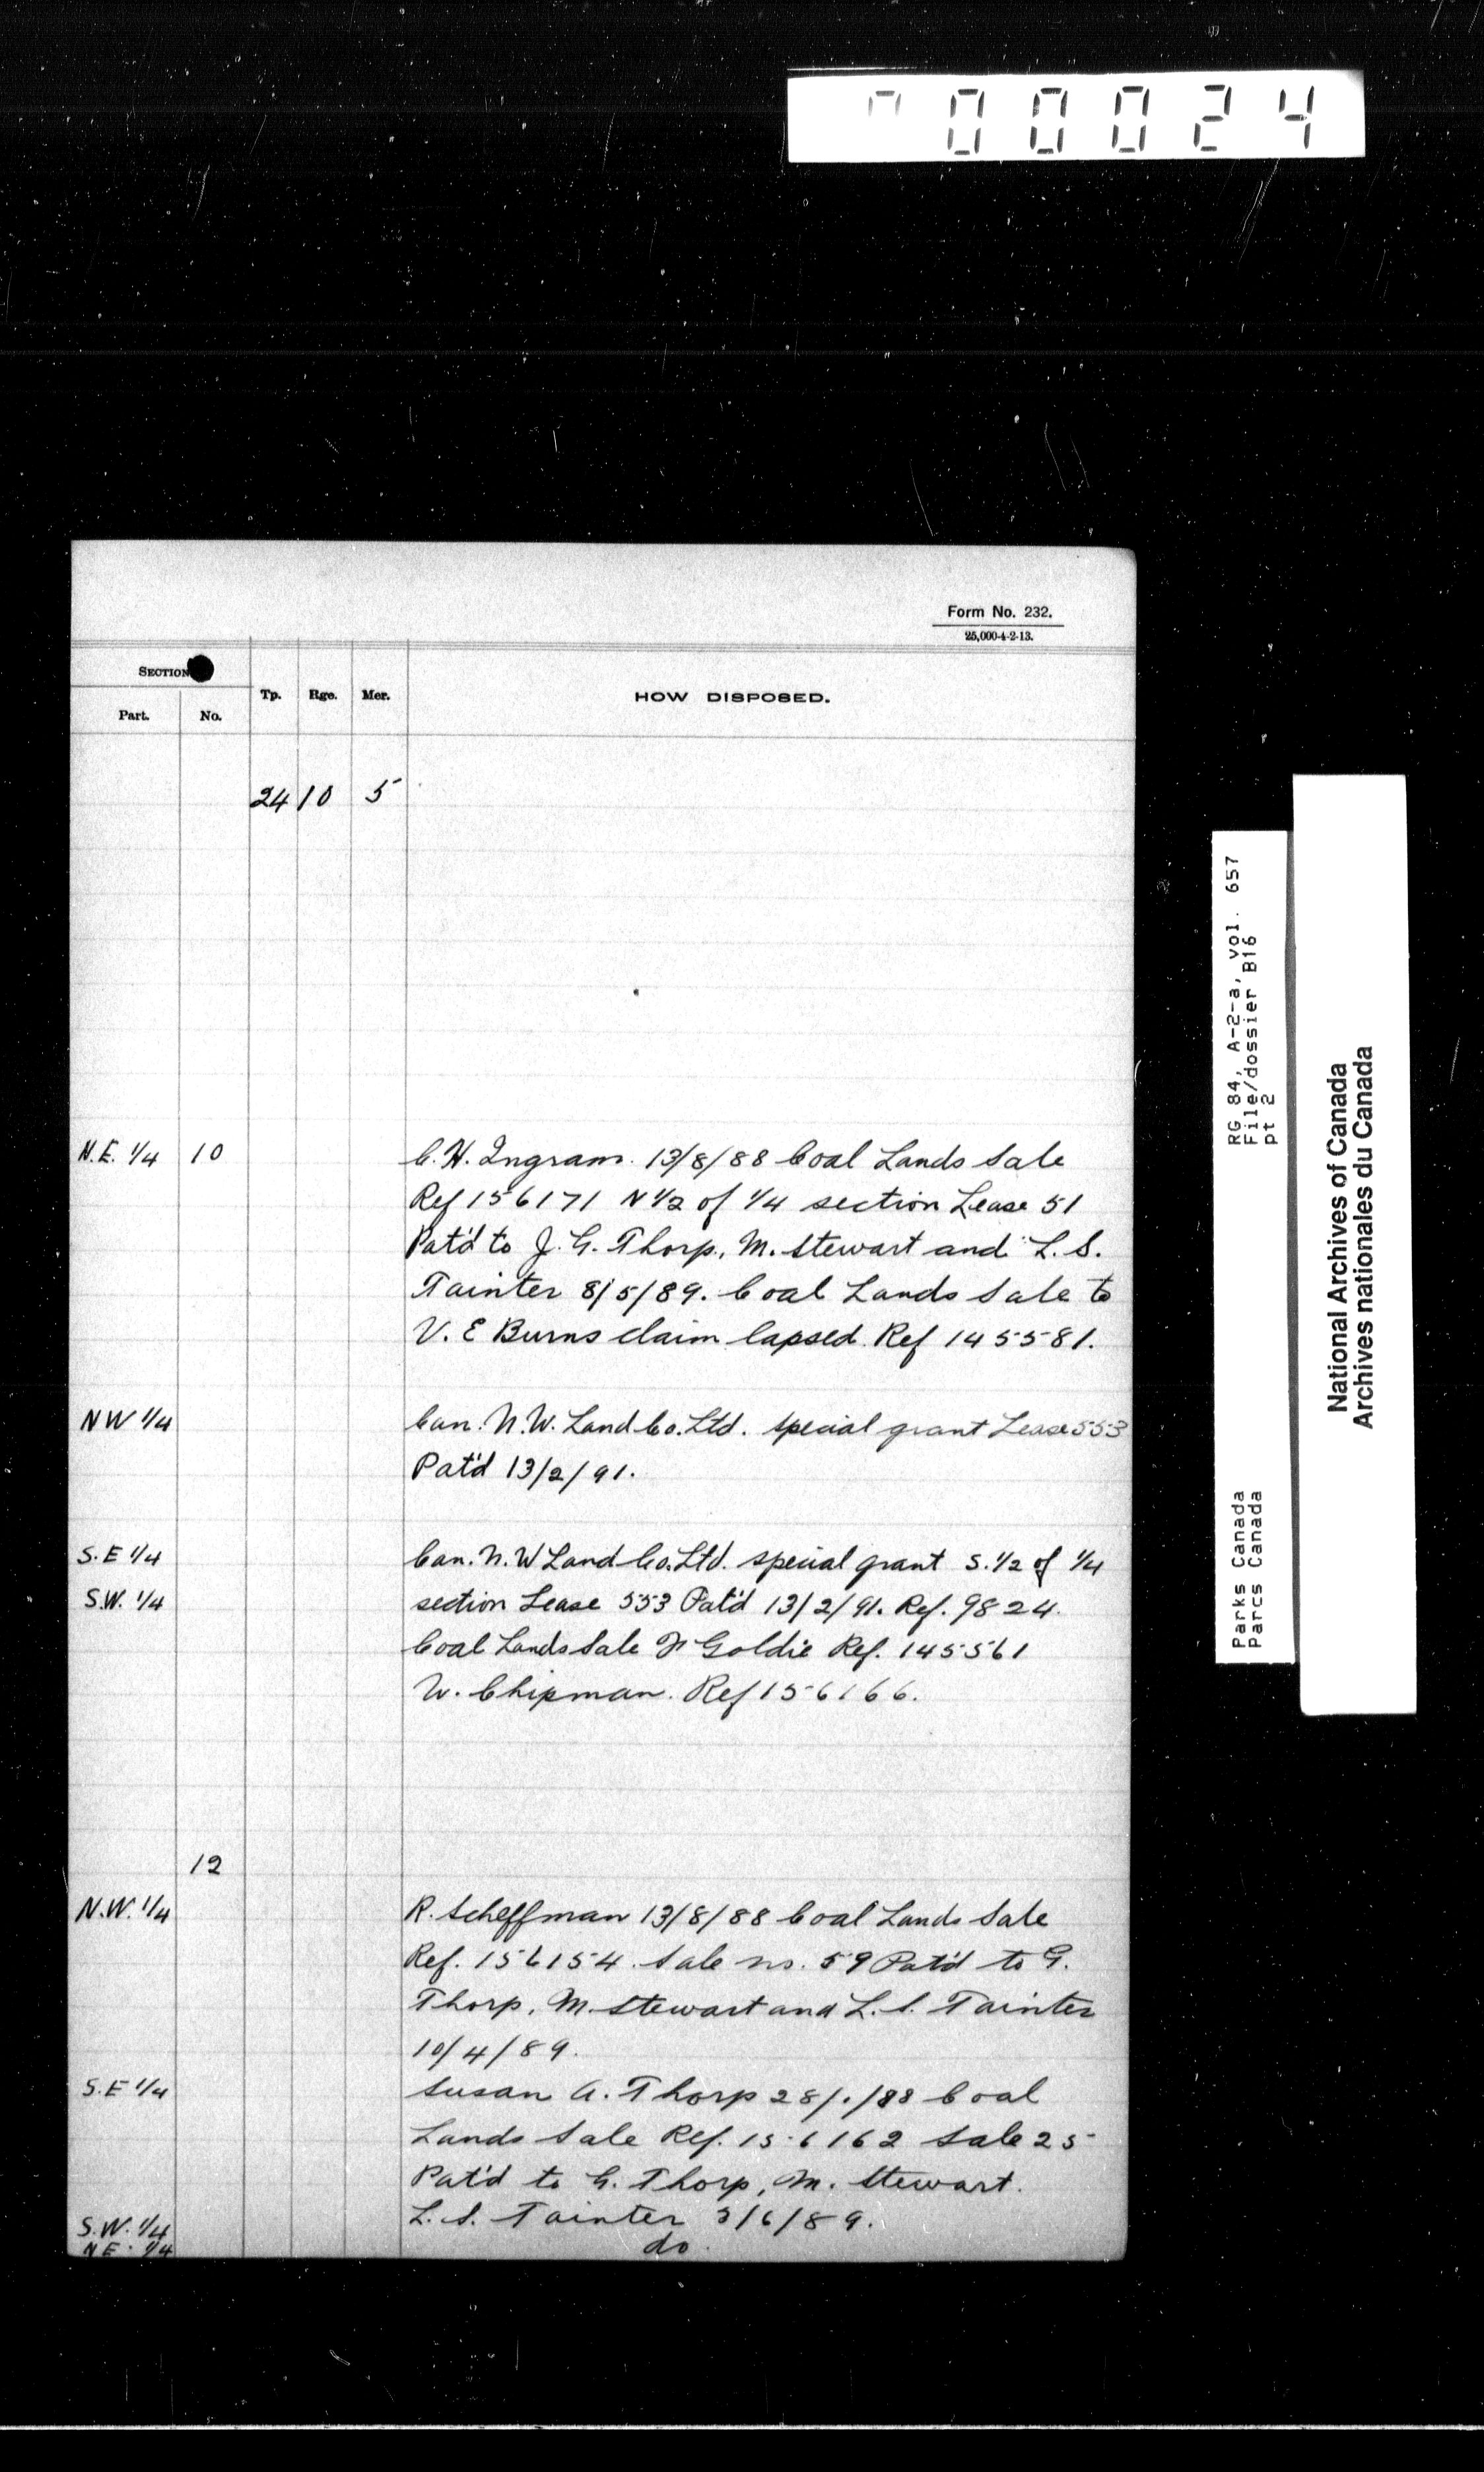 00024
Form No. 232.
25,000-4-2-13.
SECTION
Part. No. Tp. Rge. Mer. HOW DISPOSED.
24 10 5
N.E. 1/4 10 C. H. Ingram. 13/8/88 Coal Lands Sale
Ref 156171 N 1/2 of 1/4 section Lease 51
Pat'd to J. G. Thorp, M. Stewart and L. S.
Tainter 8/5/89. Coal Lands Sale to
V. E Burns claim lapsed. Ref 145581.
NW 1/4 Can. N.W. Land Co. Ltd. special grant Lease 553
Pat'd 13/2/91.
S.E 1/4 Can. N.W Land Co. Ltd. special grant S. 1/2 of 1/4
S.W. 1/4 section Lease 553 Pat'd 13/2/91. Ref. 9824.
Coal Lands Sale Goldie Ref. 145561
W. Chipman. Ref 156166.
12
N.W. 1/4 R. Scheffman 13/8/88 Coal Lands Sale
Ref. 156154. Sale no. 59 Pat'd to G.
Thorp, M. Stewart and L. S. Tainter
10/4/89.
S.E 1/4 Susan A. Thorp 28/ /88 Coal
Lands Sale Ref. 156162 Sale 25
Pat'd to G. Thorp, M. Stewart.
L. S. Tainter 3/6/89.
S.W. 1/4
N E. 1/4 do.
RG 84, A-2-a, vol. 657
File/dossier B16
pt 2
Parks Canada
Parcs Canada
National Archives of Canada
Archives nationales du Canada